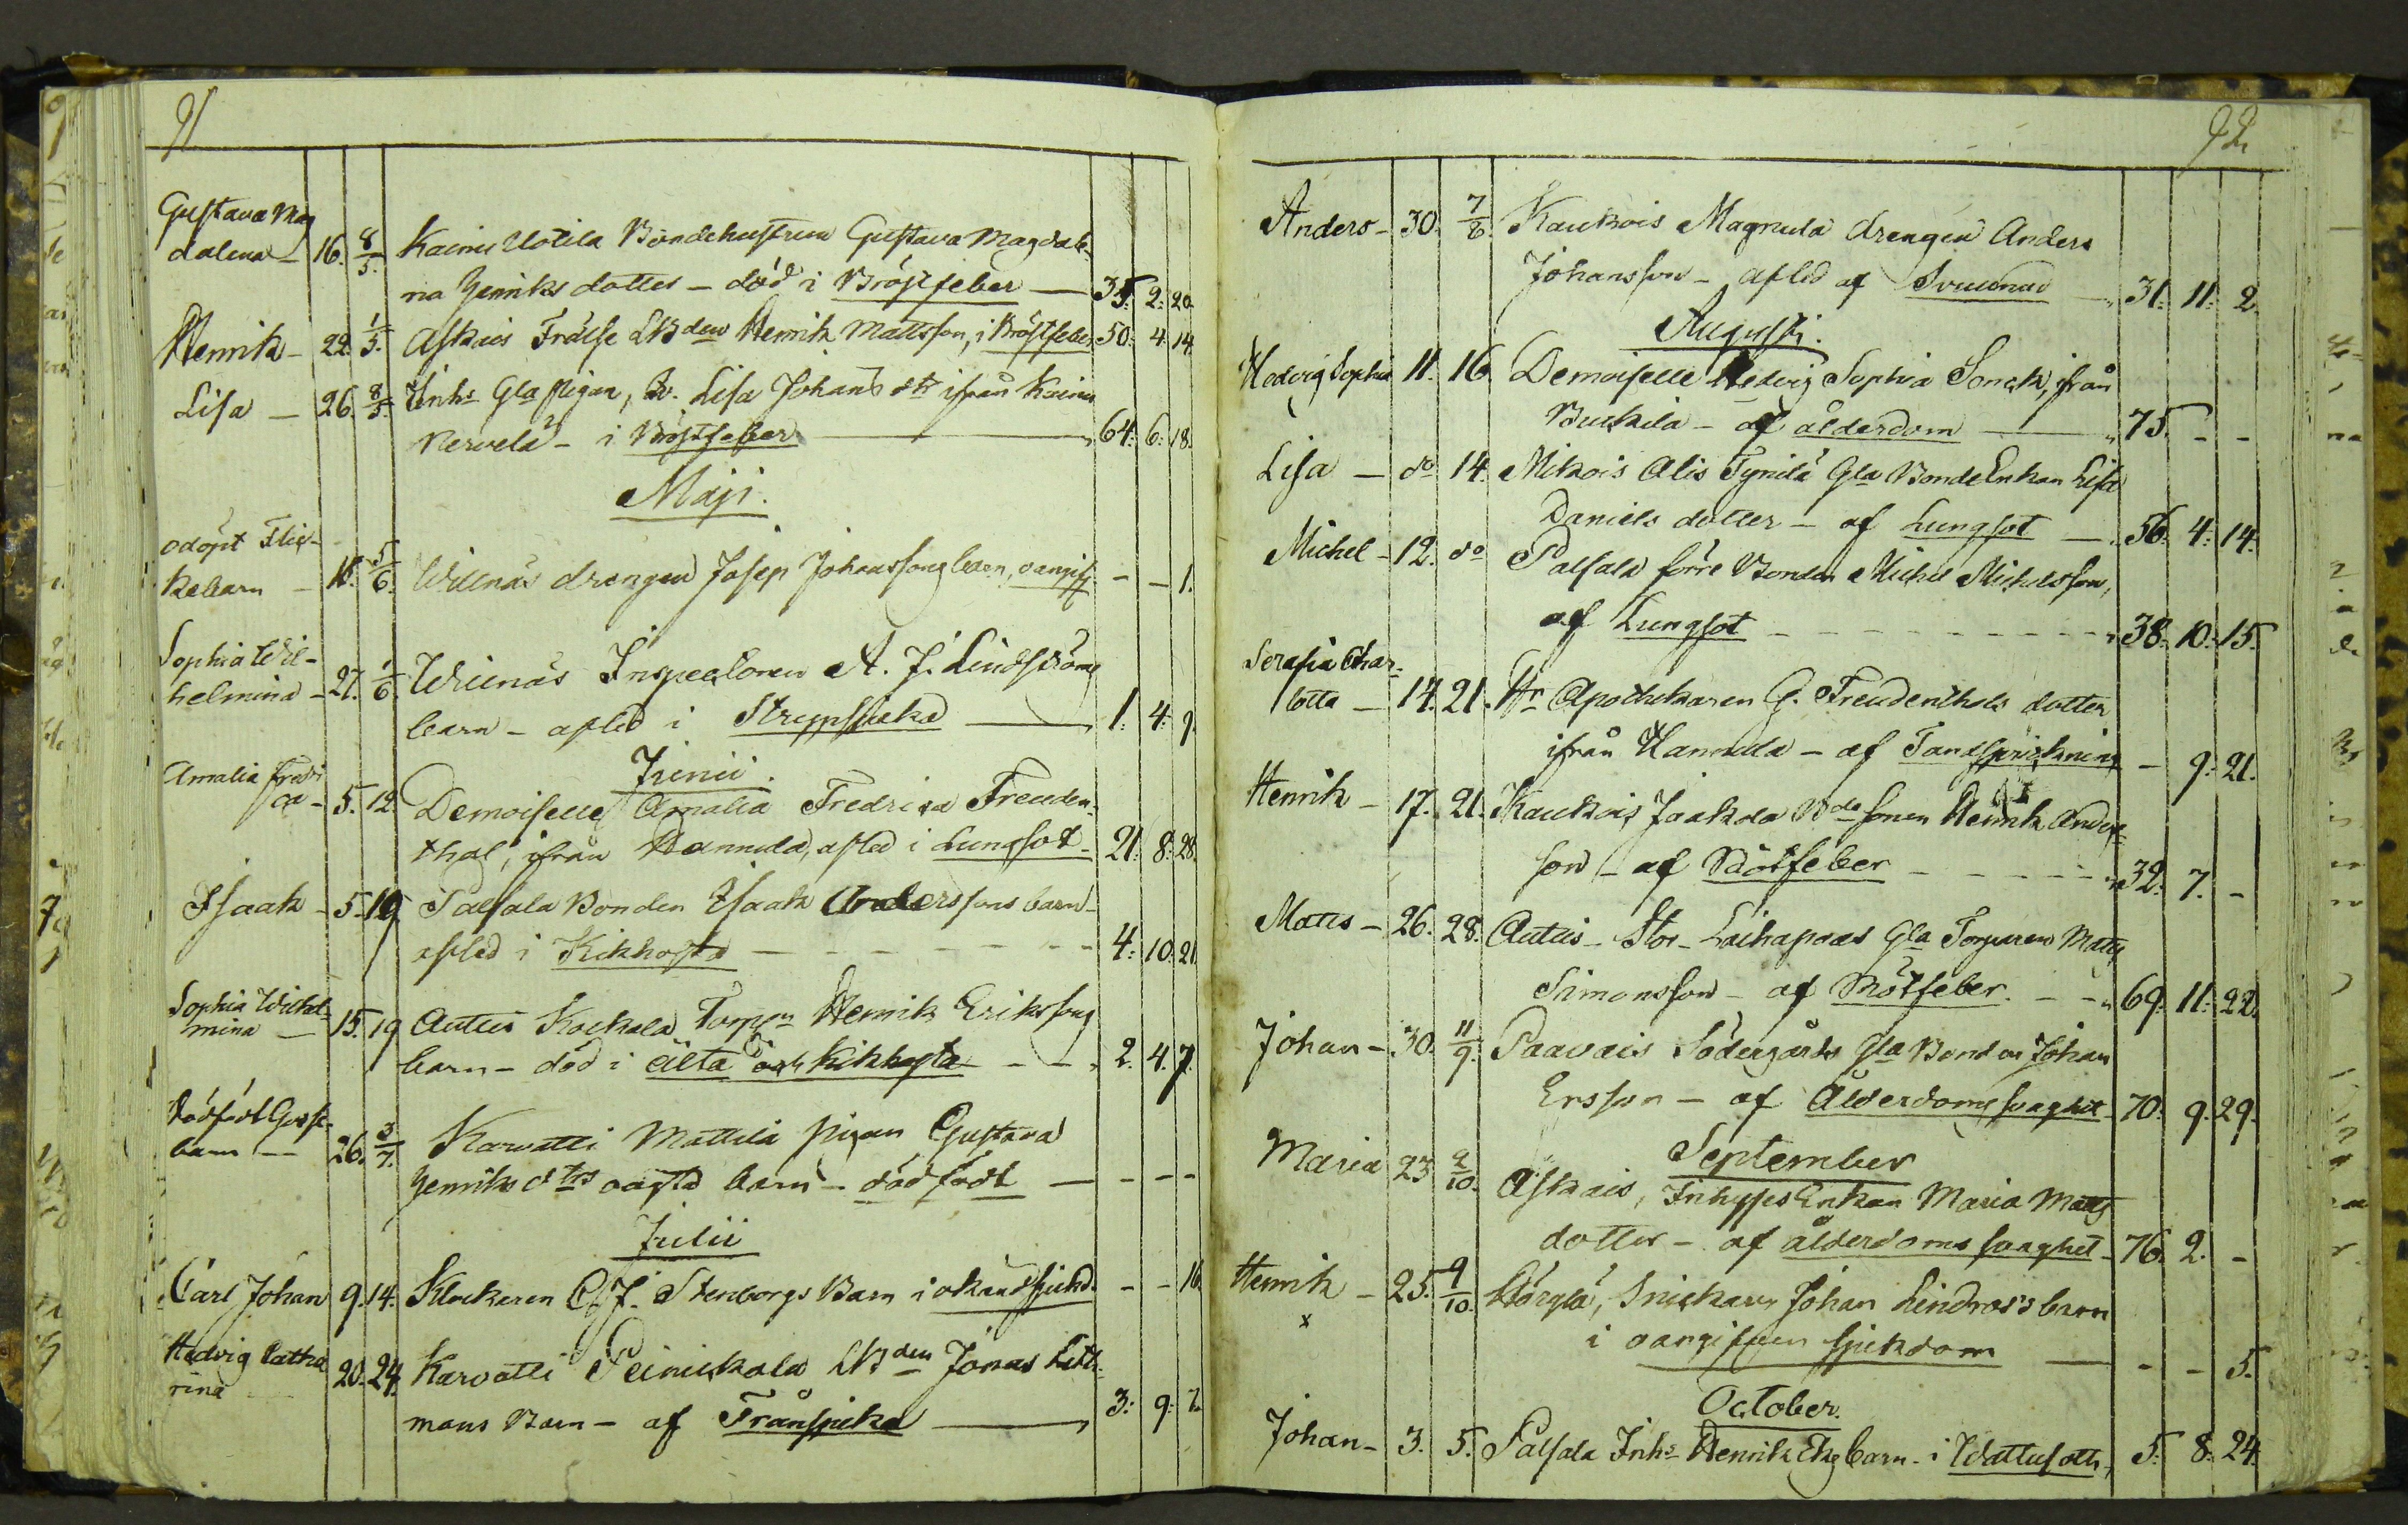 91
Gustava Mag
dalena - 16. 8/5. Kainu Uotila Bondehustrun Gustava Magdale-
na Henriks dotter - död i Bröstfeber - 35. 2. 20.
Henrik - 22. 1/5. Askais Frälse LBden Henrik Mattsson, i Bröstfeber 50. 4. 14.
Lisa - 26. 8/5. Inhs Gla pigan, Lisa Johans dtr ifrån Kainu
Nervelä - i Bröstfeber - 64. 6. 18.
Maji.
odöpt Flic-
kebarn - 18. 5/6. Willnäs drengen Josep Johanssons barn, oangif. - - 1.
Sophia Wil-
helmina - 27. 1/6. Willnäs Inspectoren A. J. Lindströms
barn - afled i Strypsjuka - 1. 4. 9.
Junii.
Amalia Fredri
ca - 5. 12. Demoiselle Amalia Fredrica Freuden-
thal, ifrån Hannula, afled i Lungsot - 21. 8. 28.
Isaak - 5. 19. Palsala Bonden Isaak Anderssons barn -
afled i Kikhosta - 4. 10. 21.
Sophia Wilhel-
mina - 15. 19. Autuis Kockala Torpn Henrik Erikssons
barn - död i älta och Kikhosta - - 2. 4. 7.
Dödfödt Gosse-
barn - 26. 3/7. Karvatti Mattila pigan Gustava
Henriks dtrs oägta barn - dödfödt - - - -
Julii
Carl Johan 9. 14. Klockaren C. J. Stenborgs Barn i okänd sjukd. - - 16.
Hedvig Catha
rina 20. 24. Karvatti Peinickala LBden Jonas Lith-
mans Barn - af Trånsjuka - 3. 9. 7.
92
Anders - 30. 7/8. Kaukois Magnula drengen Anders
Johansson - afled af - 31. 11. 2.
Augusti.
Hedvig Sophia 11. 16. Demoiselle Hedvig Sophia Sonck, ifrån
Buckila - af ålderdom - 75. - -
Lisa - do 14. Mikois Alis Tynilä Gla BondeEnkan Lisa
Daniels dotter - af Lungsot - 56. 4. 14.
Michel - 12. do Palsala förre Bonden Michel Michelsson,
af Lungsot - 38. 10. 15.
Serafia Char-
lotta - 14. 21. Hr Apothekaren G. Freudenthals dotter
ifrån Hannula - af Tandsprickning - 9. 21.
Henrik - 17. 21. Kaukois Jaakola Bde sonen Henrik Anders-
son - af Rötfeber - 32. 7. -
Matts - 26. 28. Autuis - Stor-Laihapois Gla Torparen Matts
Simonsson - af Rötfeber - - 69. 11. 22.
Johan - 30. 11/9. Paavais Södergårds Gla Bonden Johan
Ersson - af Ålderdomssvaghet - 70. 9. 29.
September
Maria 23. 2/10. Askais, Inhyses Enkan Maria Matts
dotter - af ålderdoms svaghet - 76. 2. -
Henrik - 25. 9/10. Snickaren Johan Lindroos's barn
x
i oangifven sjukdom - - - 5.
October.
Johan - 3. 5. Palsala Inhs Henrik Eks barn - i Wattusott, 5. 8. 24.